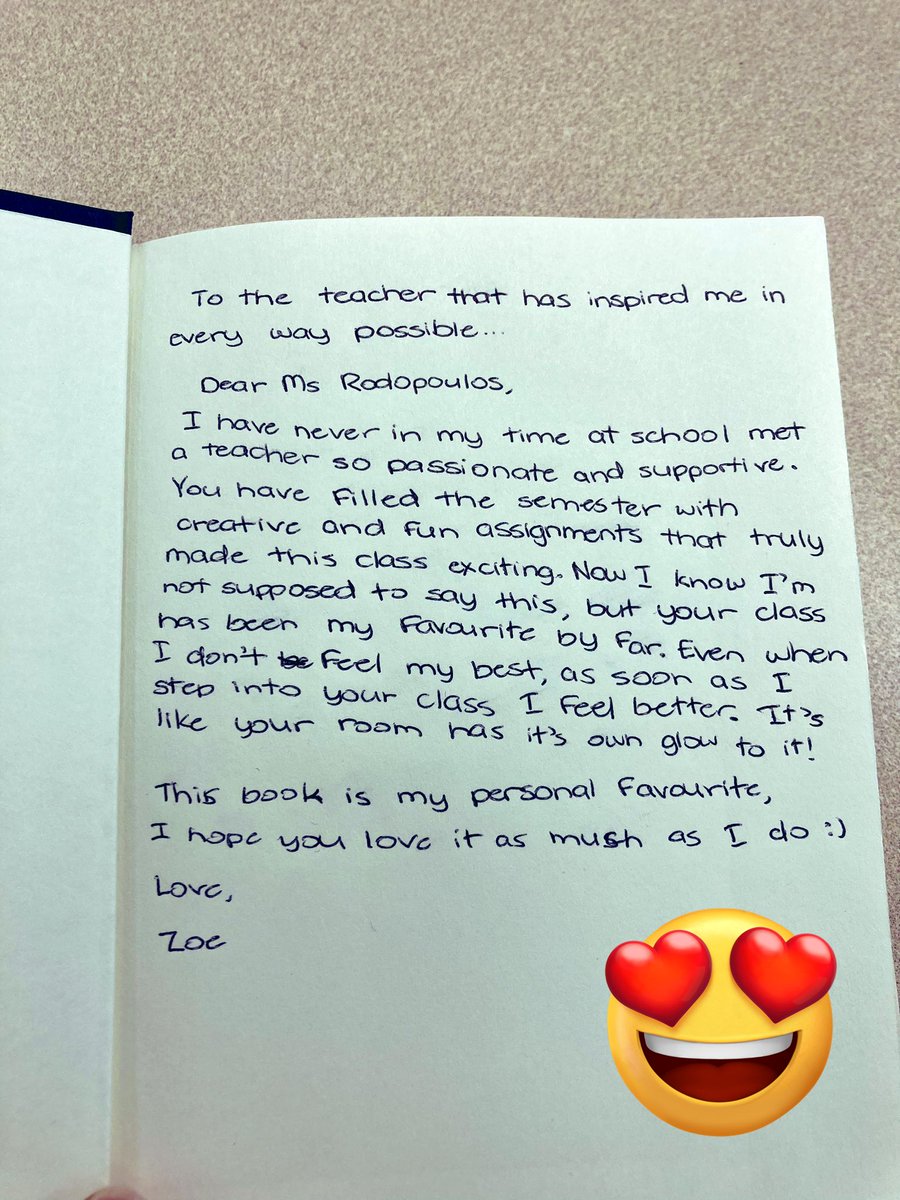 To the teacher that has inspired me in
every way possible...
Dear Ms Rodopoulos,
I have never in my time at school met
a teacher so passionate and supportive.
You have filled the semester with
creative and fun assignments that truly
made this class exciting. Now I know I'm
not supposed to say this, but your class
has been my favourite by far. Even when
I don't be feel my best, as soon as I
step into your class I feel better. It's
like your room has it's own glow to it!
This book is my personal favourite,
I hope you love it as much as I do :)
Love,
Zoe